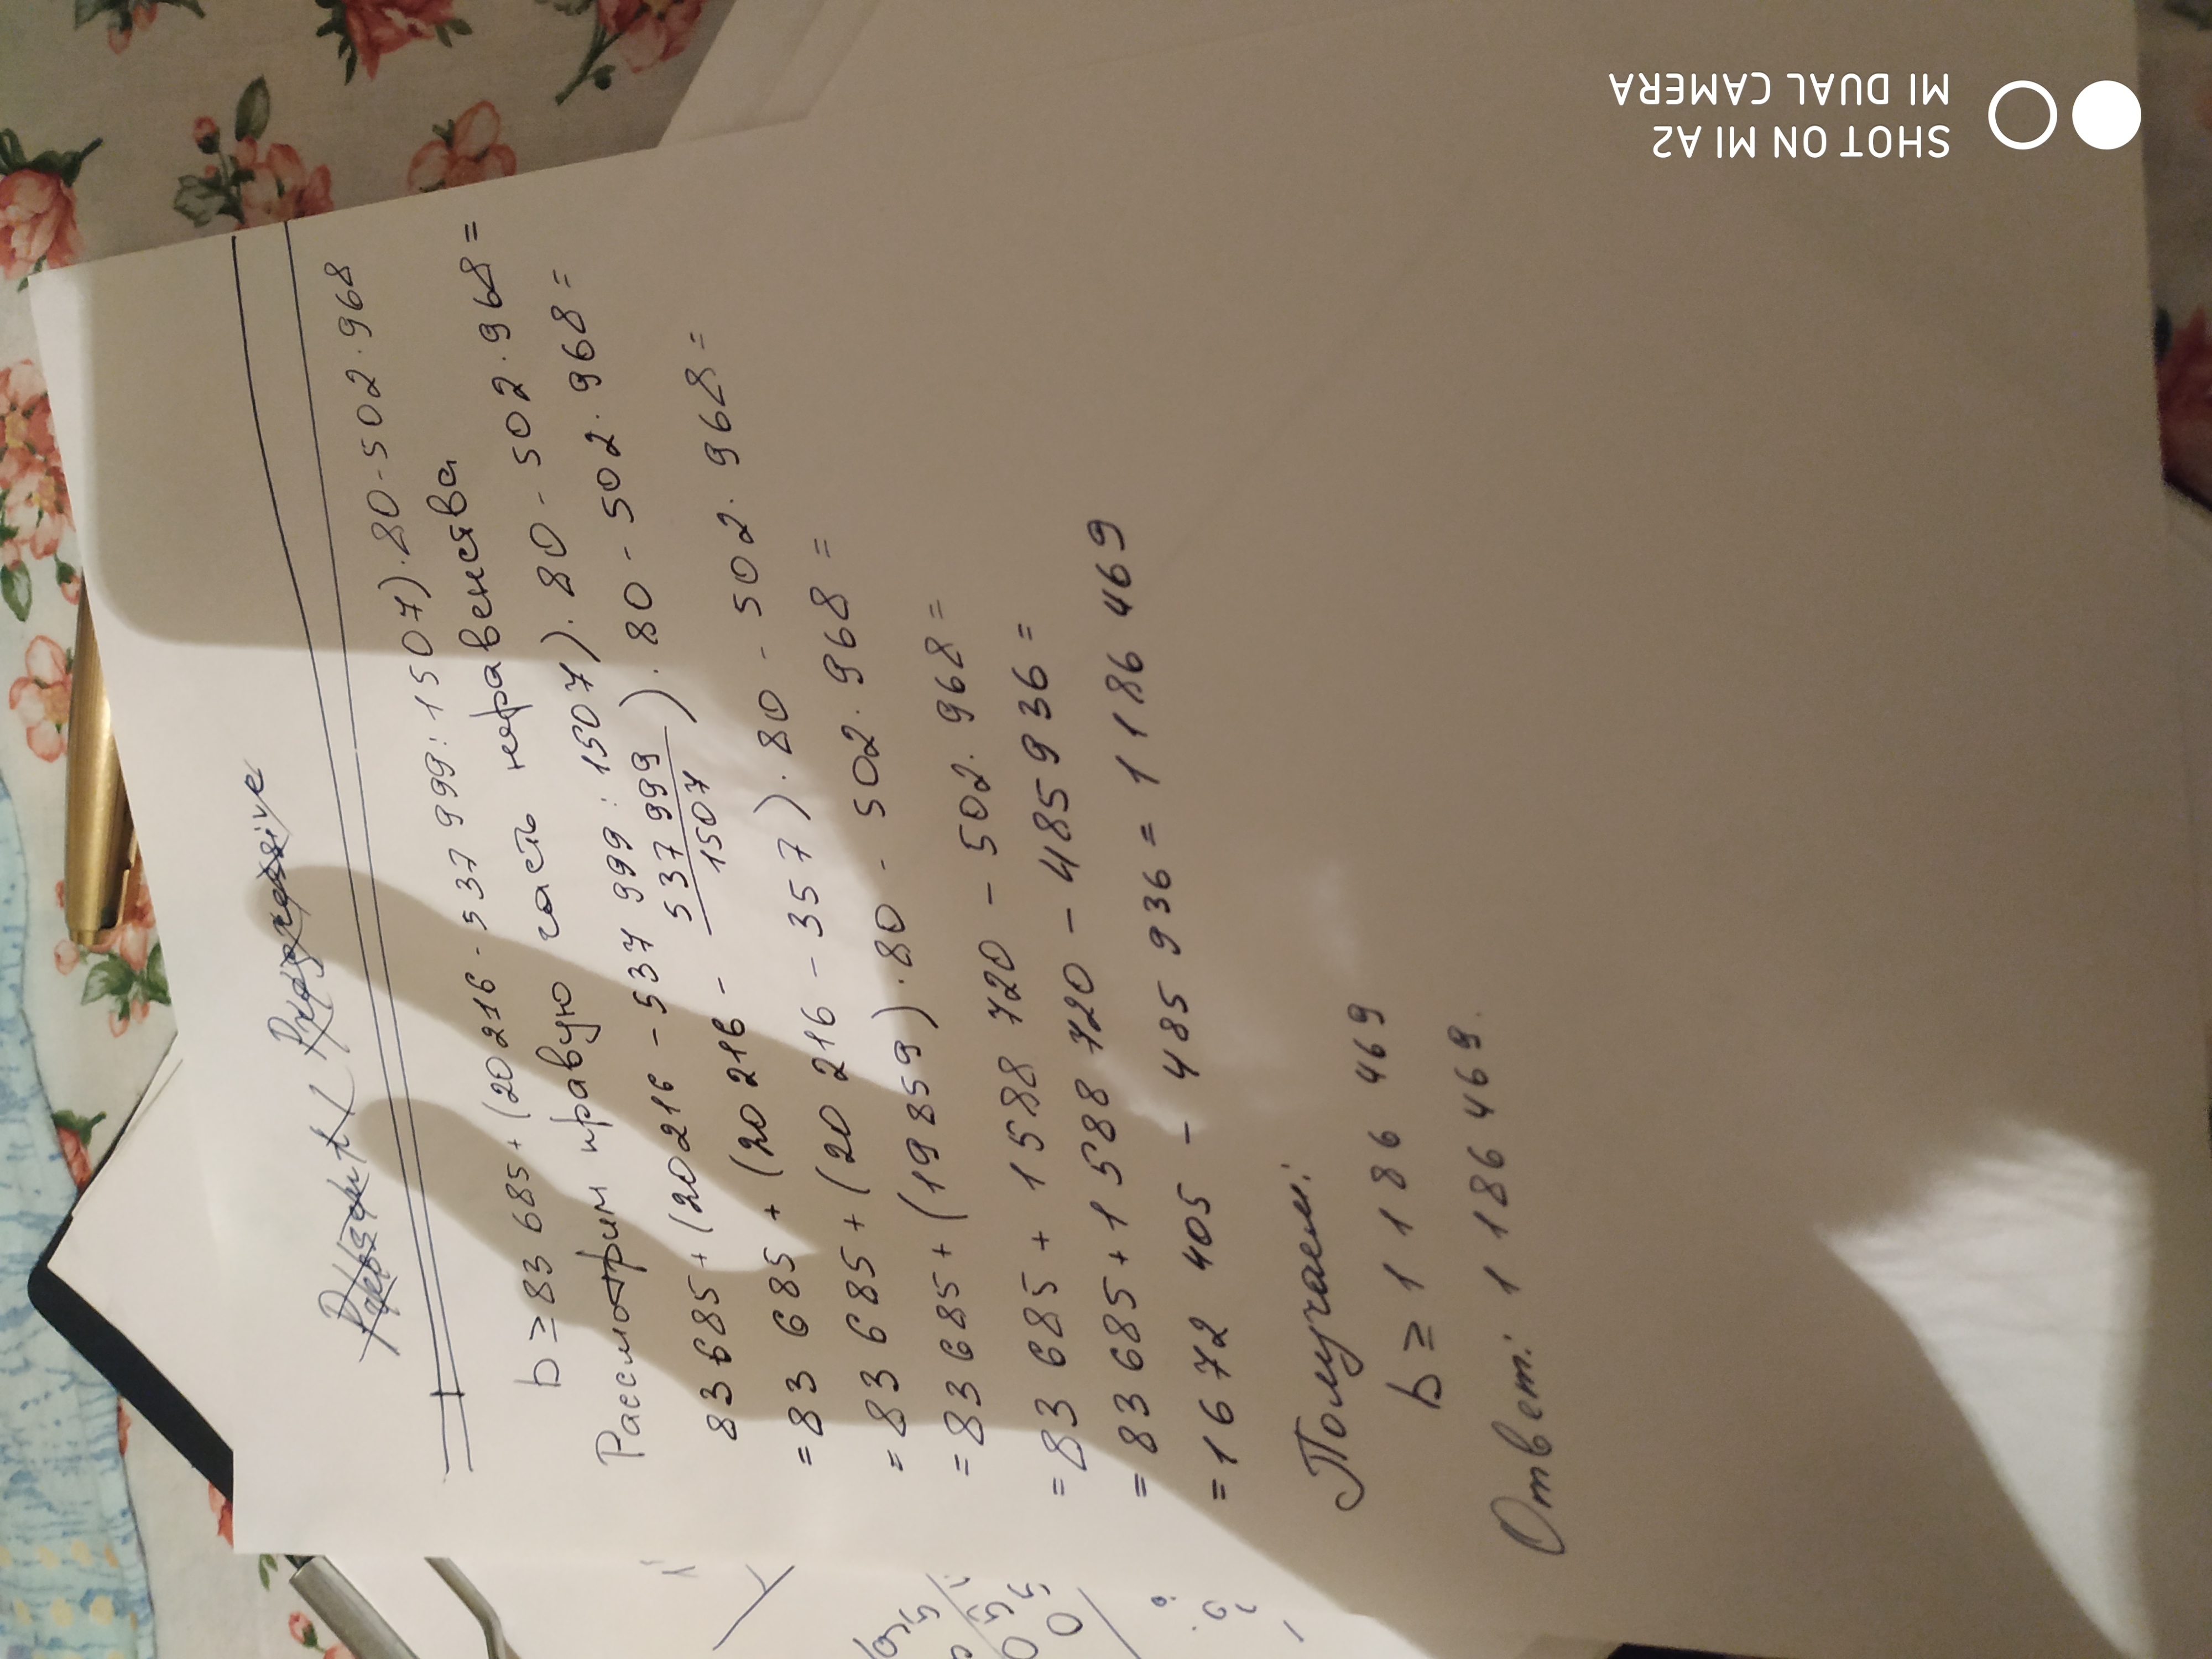 b ≥ 83 685 + (20 216 - 537 999 : 1507) · 80 - 502 · 968
Рассмотрим правую часть неравенства
83 685 + (20 216 - 537 999 : 1507) · 80 - 502 · 968 =
= 83 685 + (20 216 - 537 999 / 1507) · 80 - 502 · 968 =
= 83 685 + (20 216 - 357) · 80 - 502 · 968 =
= 83 685 + (19 859) · 80 - 502 · 968 =
= 83 685 + 1 588 720 - 502 · 968 =
= 83 685 + 1 588 720 - 485 936 =
= 1 672 405 - 485 936 = 1 186 469
Получаем:
b ≥ 1 186 469
Ответ: 1 186 469.
SHOT ON MI A2
MI DUAL CAMERA